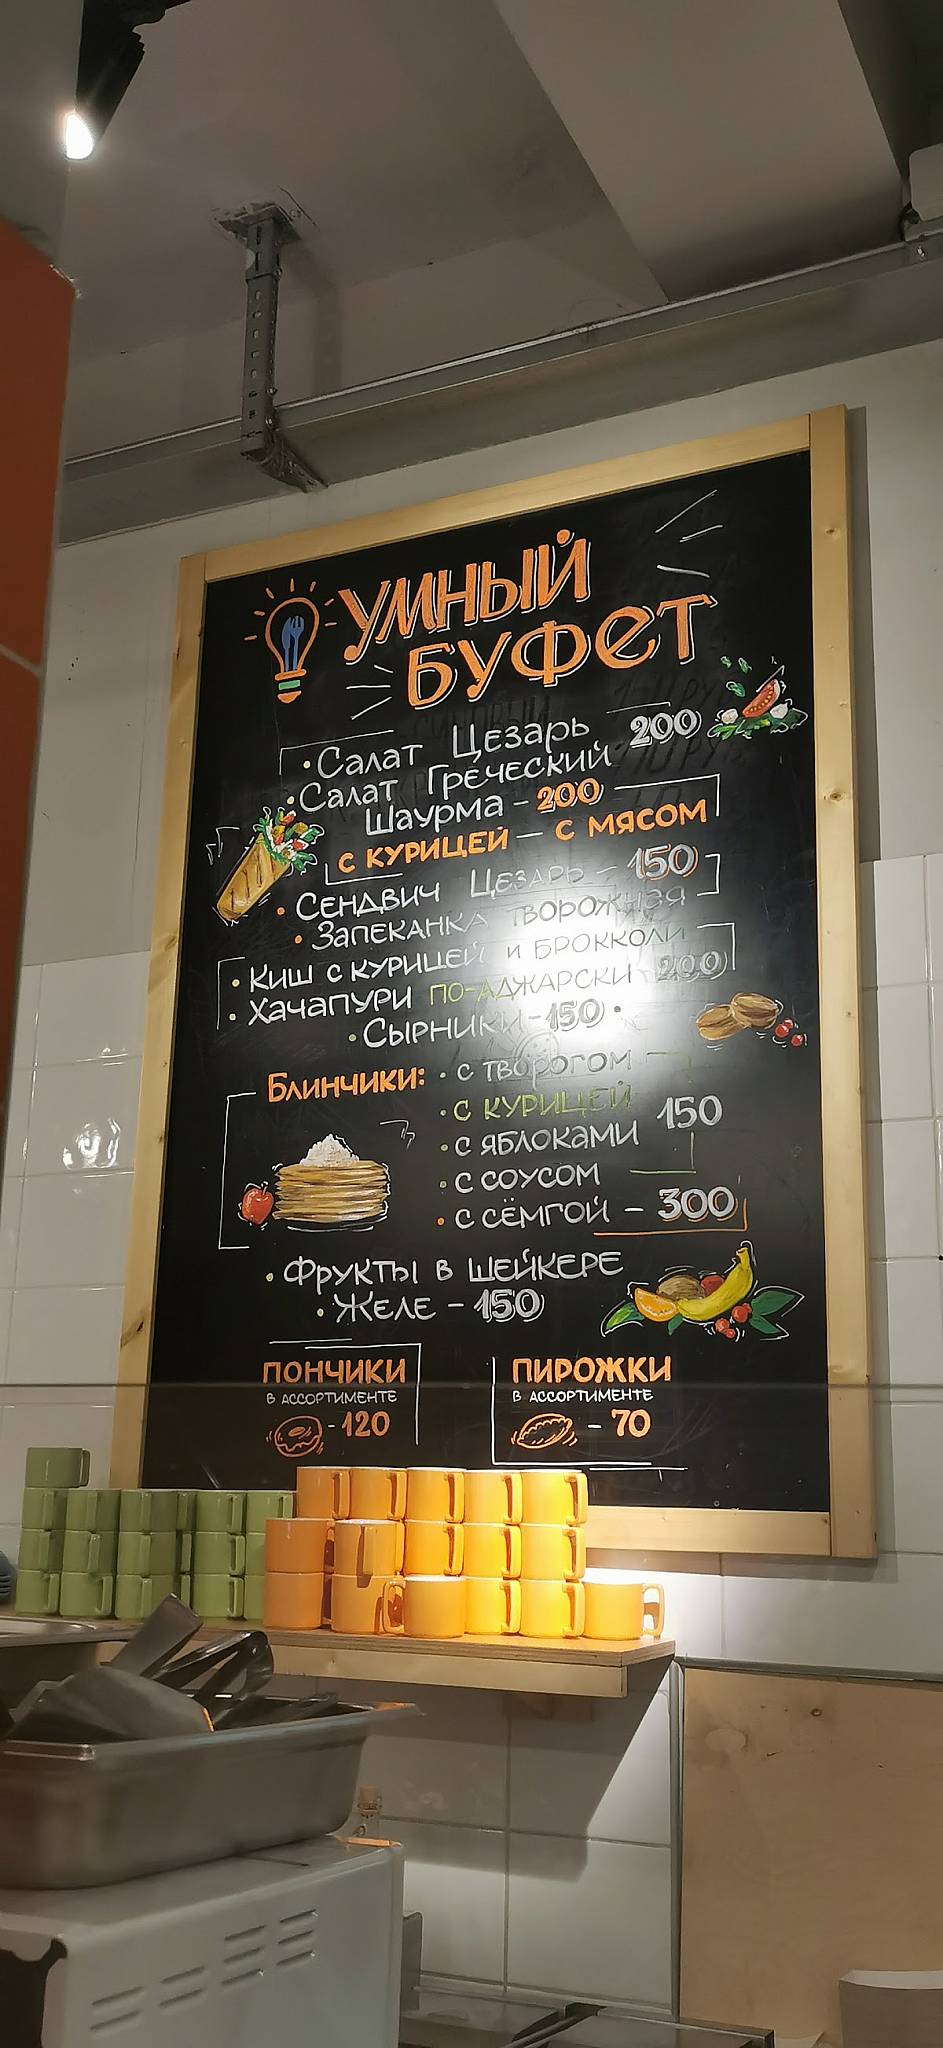 УМНЫЙ
БУФЕТ
• Салат Цезарь 200
• Салат Греческий
Шаурма - 200
с курицей — с мясом
• Сендвич Цезарь - 150
• Запеканка творожная
• Киш с курицей и брокколи
• Хачапури по-аджарски 200
• Сырники - 150 •
Блинчики: • с творогом
• с курицей 150
• с яблоками
• с соусом
• с сёмгой - 300
• Фрукты в шейкере
• Желе - 150
ПОНЧИКИ
в ассортименте
- 120
ПИРОЖКИ
в ассортименте
- 70